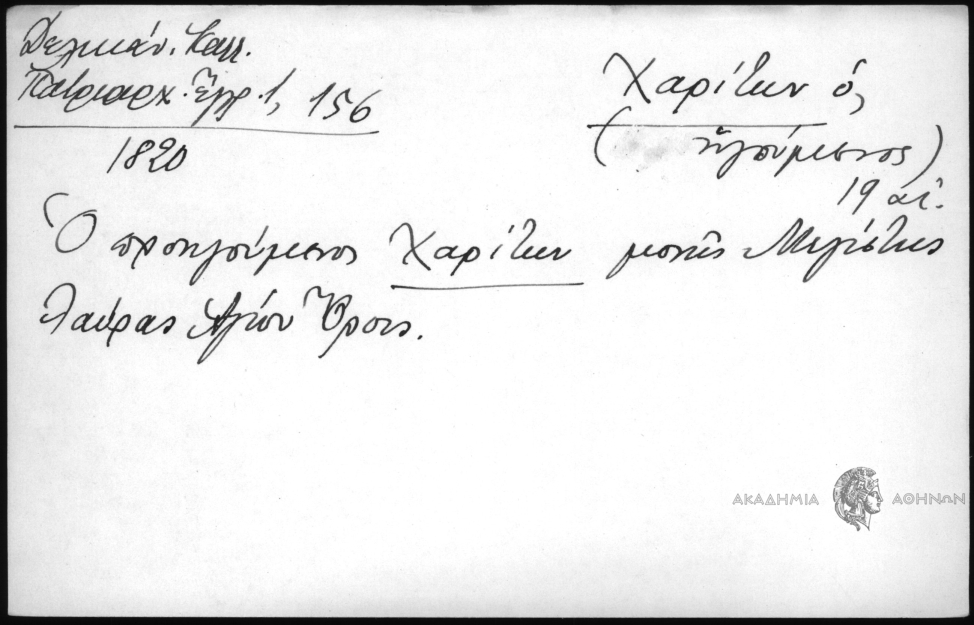 Δελικάν. Καλλ.
Πατριαρχ. Ἔγγρ. 1, 156
1820
Χαρίτων ὁ,
(ἡγούμενος)
19 αἰ.
Ὁ προηγούμενος Χαρίτων μονῆς Μεγίστης
Λαύρας Ἁγίου Ὄρους.
ΑΚΑΔΗΜΙΑ ΑΘΗΝΩΝ